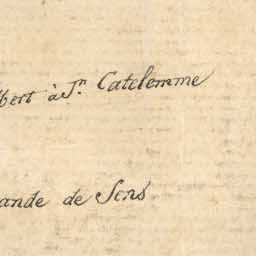 bert à Jn Catelemme
ande de Sens